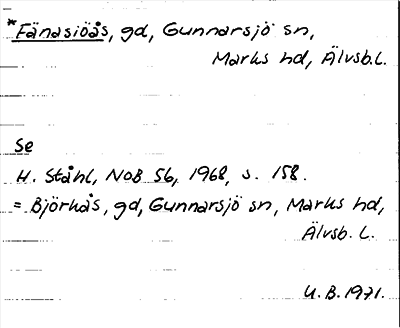 *Fänasiöås, gd, Gunnarsjö sn,
Marks hd, Älvsb.l.
Se
H. Ståhl, NoB 56, 1968, s. 158.
= Björkås, gd, Gunnarsjö sn, Marks hd,
Älvsb. l.
U.B.1971.